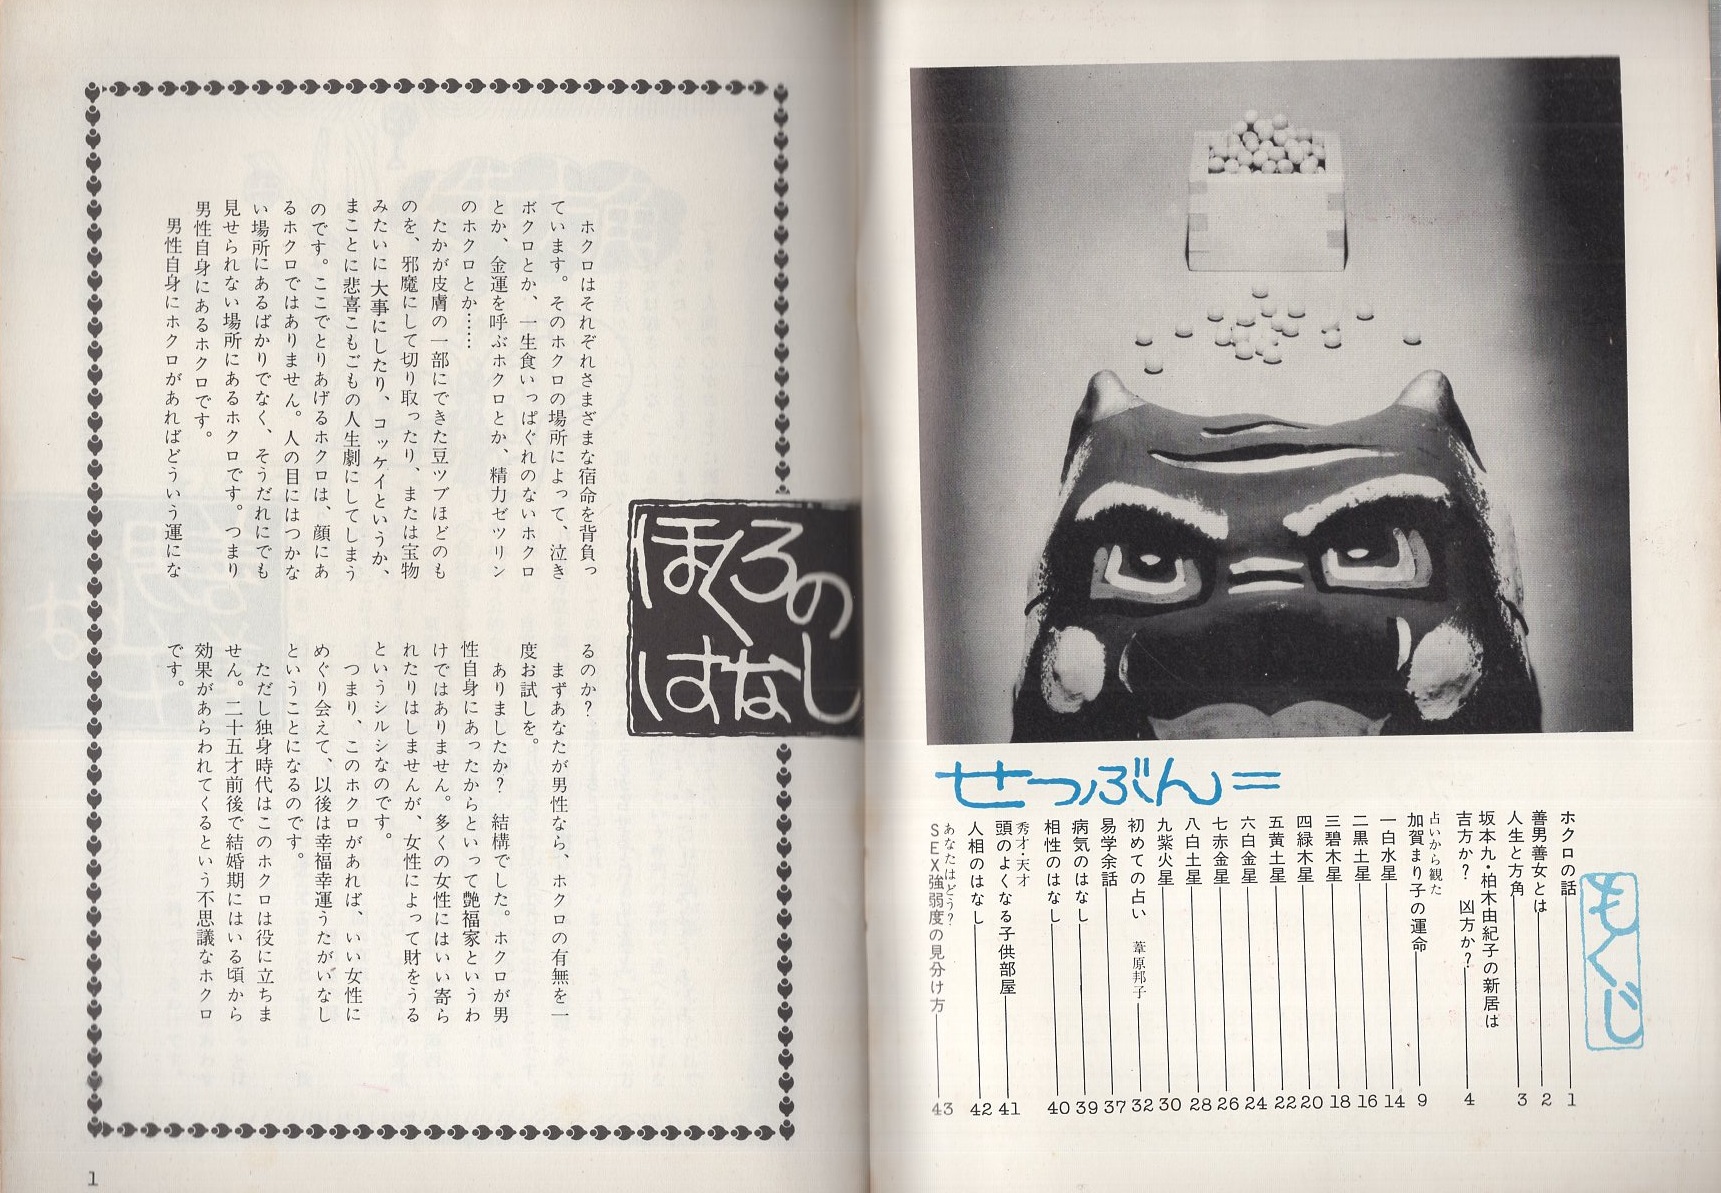 せつぶん=
もくじ
ホクロの話 1
善男善女とは 2
人生と方角 3
坂本九・柏木由紀子の新居は
吉方か? 凶方か? 4
占いから観た
加賀まり子の運命 9
一白水星 14
二黒土星 16
三碧木星 18
四緑木星 20
五黄土星 22
六白金星 24
七赤金星 26
八白土星 28
九紫火星 30
初めての占い 葦原邦子 32
易学余話 37
病気のはなし 39
相性のはなし 40
秀才・天才
頭のよくなる子供部屋 41
人相のはなし 42
あなたはどう?
SEX強弱度の見分け方 43
ほくろの
はなし
ホクロはそれぞれさまざまな宿命を背負っ
ています。そのホクロの場所によって、泣き
ボクロとか、一生食いっぱぐれのないホクロ
とか、金運を呼ぶホクロとか、精力ゼツリン
のホクロとか……
たかが皮膚の一部にできた豆ツブほどのも
のを、邪魔にして切り取ったり、または宝物
みたいに大事にしたり、コッケイというか、
まことに悲喜こもごもの人生劇にしてしまう
のです。ここでとりあげるホクロは、顔にあ
るホクロではありません。人の目にはつかな
い場所にあるばかりでなく、そうだれにでも
見せられない場所にあるホクロです。つまり
男性自身にあるホクロです。
男性自身にホクロがあればどういう運にな
るのか?
まずあなたが男性なら、ホクロの有無を一
度お試しを。
ありましたか? 結構でした。ホクロが男
性自身にあったからといって艶福家というわ
けではありません。多くの女性にはいい寄ら
れたりはしませんが、女性によって財をうる
というシルシなのです。
つまり、このホクロがあれば、いい女性に
めぐり会えて、以後は幸福幸運うたがいなし
ということになるのです。
ただし独身時代はこのホクロは役に立ちま
せん。二十五才前後で結婚期にはいる頃から
効果があらわれてくるという不思議なホクロ
です。
1